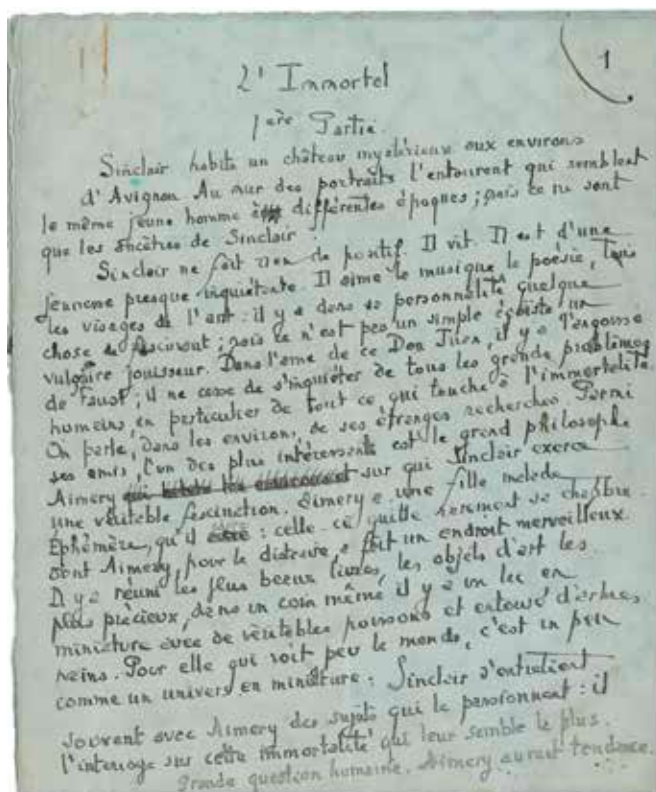 1
L'Immortel
1ère Partie.
Sinclair habite un château mystérieux aux environs
d'Avignon. Au mur des portraits l'entourent qui semblent
le même jeune homme à différentes époques ; mais ce ne sont
que les ancêtres de Sinclair.
Sinclair ne fait rien de positif. Il vit. Il est d'une
jeunesse presque inquiétante. Il aime la musique la poésie, tous
les visages de l'art : il y a dans sa personnalité quelque
chose de fascinant ; mais ce n'est pas un simple égoïste un
vulgaire jouisseur. Dans l'âme de ce Don Juan, il y a l'angoisse
de Faust ; il ne cesse de s'inquiéter de tous les grands problèmes
humains, en particulier de tout ce qui touche à l'immortalité.
On parle, dans les environs, de ses étranges recherches Parmi
ses amis, l'un des plus intéressants est le grand philosophe
Aimery sur qui Sinclair exerce
une véritable fascination. Aimery a une fille malade
Ephémère, qu'il : celle-ci quitte rarement sa chambre
dont Aimery, pour la distraire, a fait un endroit merveilleux.
Il y a réuni les plus beaux livres, les objets d'art les
plus précieux, dans un coin même il y a un lac en
miniature avec de véritables poissons et entouré d'arbres
nains. Pour elle qui voit peu le monde, c'est un peu
comme un univers en miniature : Sinclair s'entretient
souvent avec Aimery des sujets qui le passionnent : il
l'interroge sur cette immortalité qui leur semble la plus
grande question humaine. Aimery aurait tendance